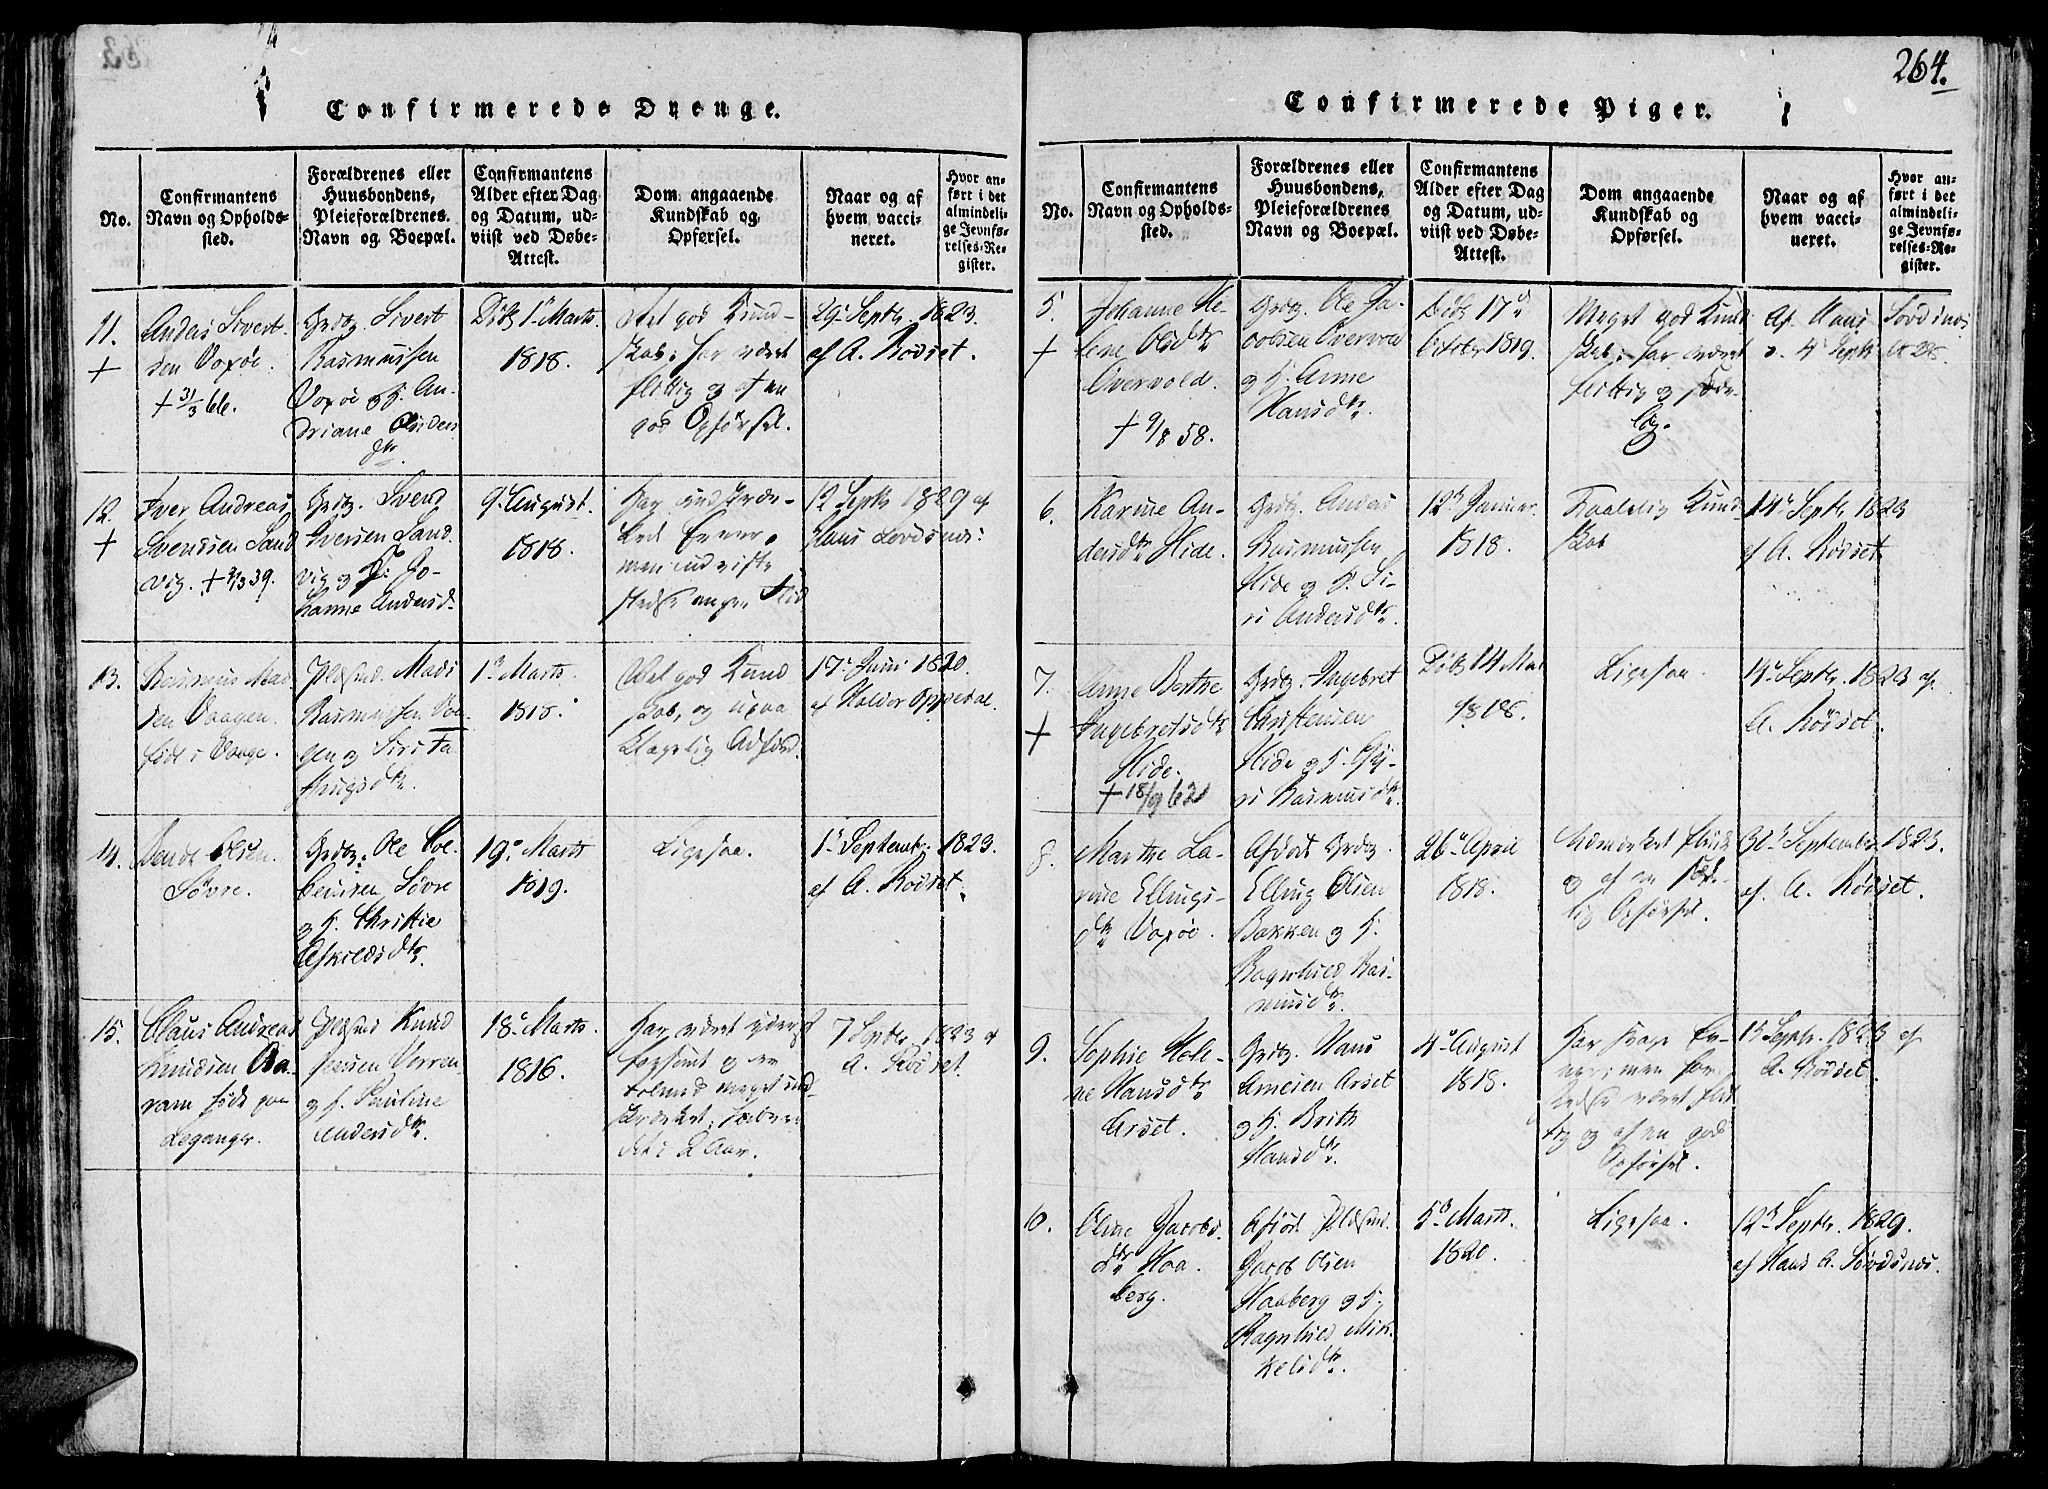 264.
Confirmerede Drenge.
No.
Confirmantens
Navn og Opholds-
sted.
Forældrenes eller
Huusbondens,
Pleieforældrenes
Navn og Boepæl.
Confirmantens
Alder efter Dag
og Datum, ud-
viist ved Døbe-
Attest.
Dom angaaende
Kundskab og
Opførsel.
Naar og af
hvem vacci-
neret.
Hvor an-
ført i det
almindeli-
ge Jevnfø-
relses-Re-
gister.
11.
+
Anders Sivert-
sen Voxøe.
+ 31/3 66.
Grdbg. Sivert
Rasmussen
Voxøe og K. An-
driane
dtr.
Døbt 1e Marts.
1818.
god Kund-
skab; har været
flittig og af en
god Opførsel.
29e Septbr. 1823.
af A. Rødset.
12.
+
Iver Andreas
Svendsen Sand
vig. + 39.
Grdbg. Svend
Iversen Sand
vig og K. Jo-
hanne Andersd.
9e August.
1818.
Har
Evner,
men udviist
megen Flid
12 Septbr 1829 af
Hans
13.
Rasmus Mad
sen Vaagen
født i Vaage.
Pldsmd. Mads
Rasmussen Vaa
gen og Siri
dtr.
1e Marts.
1818.
god Kund
skab, og upaa
klagelig Adfærd.
17e Juni 1820.
af Haldor Oppedal.
14.
Bendt Olsen
Søvre.
Grdbg. Ole
Søvre
og K. Christie
Askeldsdtr.
19e Marts
1819.
Ligesaa.
1e Septembr. 1823.
af A. Rødset.
15.
Claus Andreas
Knudsen Aa-
ram født paa
Leganger.
Pldsmd Knud
Jensen
og K. Pauline
Andersdtr.
18e Marts.
1816.
Har været yderst
forsømt og en
meget ind-
skrænket;
det i 2 Aar.
7 Septbr. 1823 af
A. Rødset.
Confirmerede Piger.
No.
Confirmantens
Navn og Opholds-
sted.
Forældrenes eller
Huusbondens,
Pleieforældrenes
Navn og Boepæl.
Confirmantens
Alder efter Dag
og Datum, ud-
viist ved Døbe-
Attest.
Dom angaaende
Kundskab og
Opførsel.
Naar og af
hvem vacci-
neret.
Hvor an-
ført i det
almindeli-
ge Jevnfø-
relses-Re-
gister.
5.
+
Johanne He-
lene Olsdtr
Overvold.
+ 9/8 58.
Grdbg. Ole Ja-
cobsen Overvold
og K. Anne
Hansdtr.
Døbt 17e
October 1819.
Meget god Kund
skab; har været
flittig og sæde-
lig.
Af Hans
d. 4e Septbr
6.
Karine An-
dersdtr Hide.
Grdbg. Anders
Rasmussen
Hide og K. Si-
ri Andersdtr.
12e Januar.
1818.
Taalelig Kund
skab
14e Septbr 1823
af A. Rødset
7.
+
Anne Berthe
Ingebretsdtr
Hide.
+ 18/9 62
Grdbg. Ingebret
Christensen
Hide og K.
Rasmusdtr.
Døbt 14 Mai
1818.
Ligesaa.
14e Septbr. 1823 af
A. Rødset.
8.
Marthe La-
rine Ellings-
dtr Voxøe.
Afdød Grdbg.
Elling Olsen
Bakken og K.
Ragnhild Ras-
musdtr.
26e April
1818.
Udmærket Flid
og af en sæde-
lig Opførsel.
30e September 1823.
af A. Rødset.
9.
Sophie Hele-
ne Hansdtr
Arset.
Grdbg. Hans
Arnesen Arset
og K. Brith
Hansdtr.
4e August
1818.
Har svage Ev-
ner; men har
været flit
tig og af en god
Opførsel.
15 Septbr. 1823 af
A. Rødset.
10.
Oline Jacobs
dtr Haa-
berg.
Afdød Pldsmd.
Jacob Olsen
Haaberg og K.
Ragnhild Mik-
kelsdtr.
5e Marts.
1820.
Ligesaa.
12e Septbr. 1829.
af Hans A. Sordsnæs.